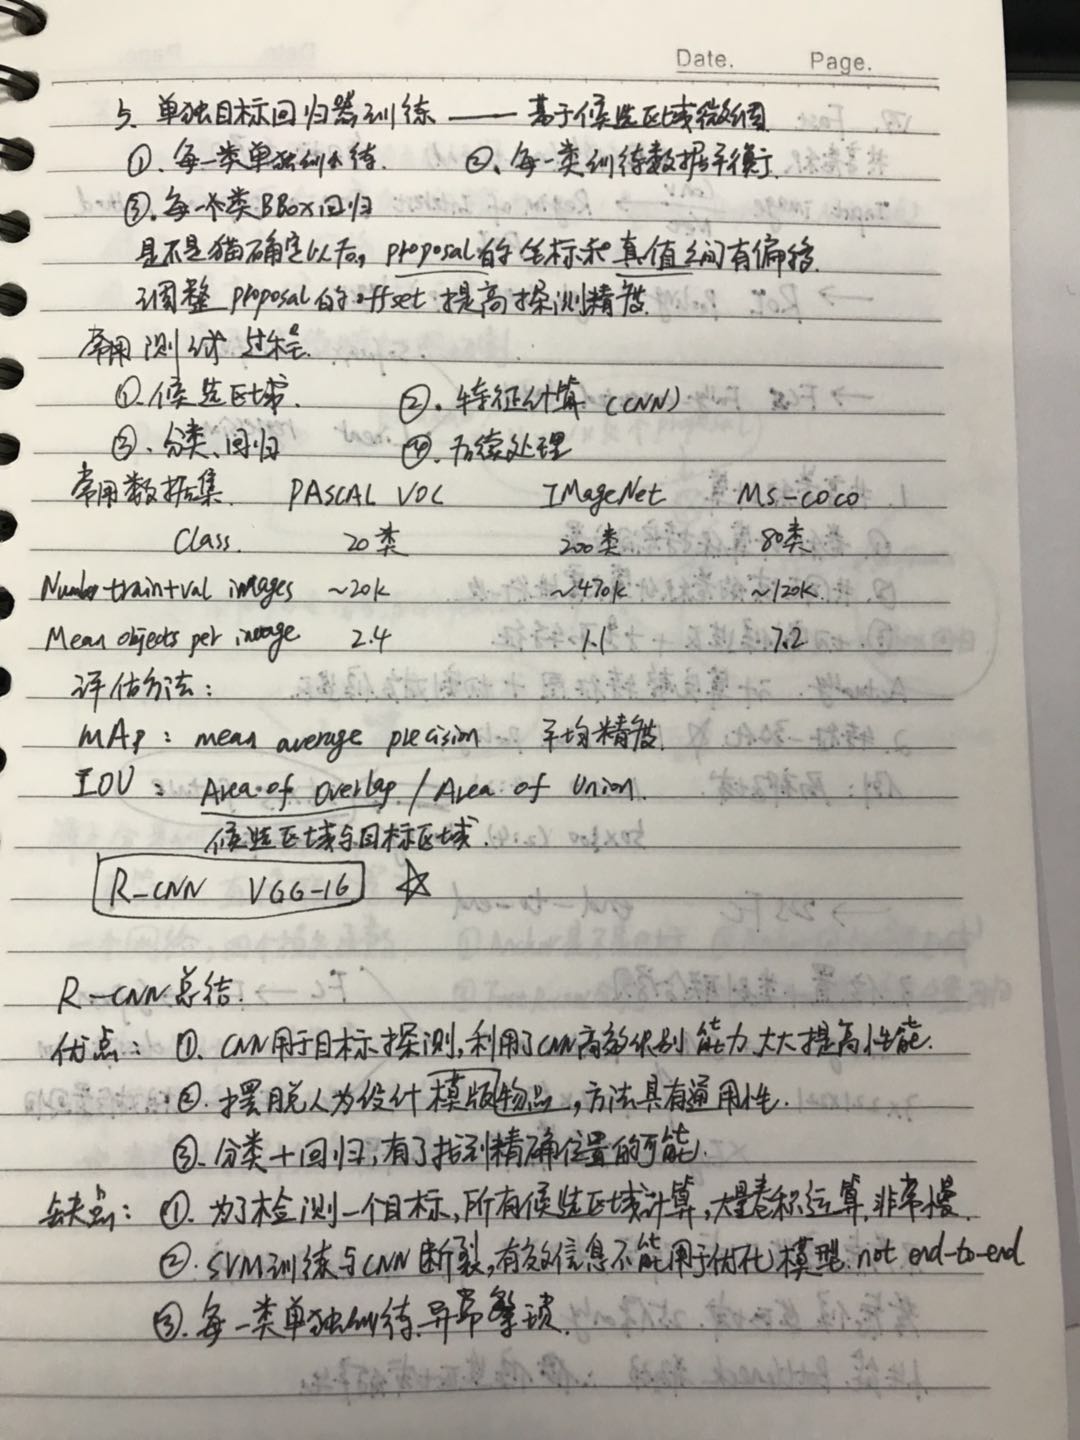 Date. Page.
5. 单独目标回归器训练 —— 基于候选区域微调
①. 每一类单独训练. ②. 每一类训练数据平衡.
③. 每一个类BBox回归
是不是猫确定以后, proposal的坐标和真值之间有偏移.
调整 proposal的offset 提高探测精度.
常用测试过程.
①. 候选区域. ②. 特征计算 (CNN)
③. 分类、回归 ④. 后续处理
常用数据集. PASCAL VOC IMageNet MS-COCO
Class. 20类 200类 80类
Number train+val images ~20k ~470k ~120k.
Mean objects per image 2.4 1.1 7.2
评估方法:
mAp: mean average precision 平均精度.
IOU: Area of Overlap / Area of Union.
候选区域与目标区域.
R-CNN VGG-16 ☆
R-CNN总结.
优点: ①. CNN用于目标探测, 利用了CNN高效识别能力大大提高性能.
②. 摆脱人为设计模版物品, 方法具有通用性.
③. 分类+回归, 有了找到精确位置的可能.
缺点: ①. 为了检测一个目标, 所有候选区域计算, 大量卷积运算, 非常慢.
②. SVM训练与CNN断裂, 有效信息不能用于优化模型. not end-to-end
③. 每一类单独训练. 异常繁琐.